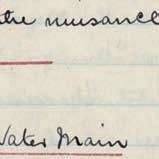 the nuisance
Water Main